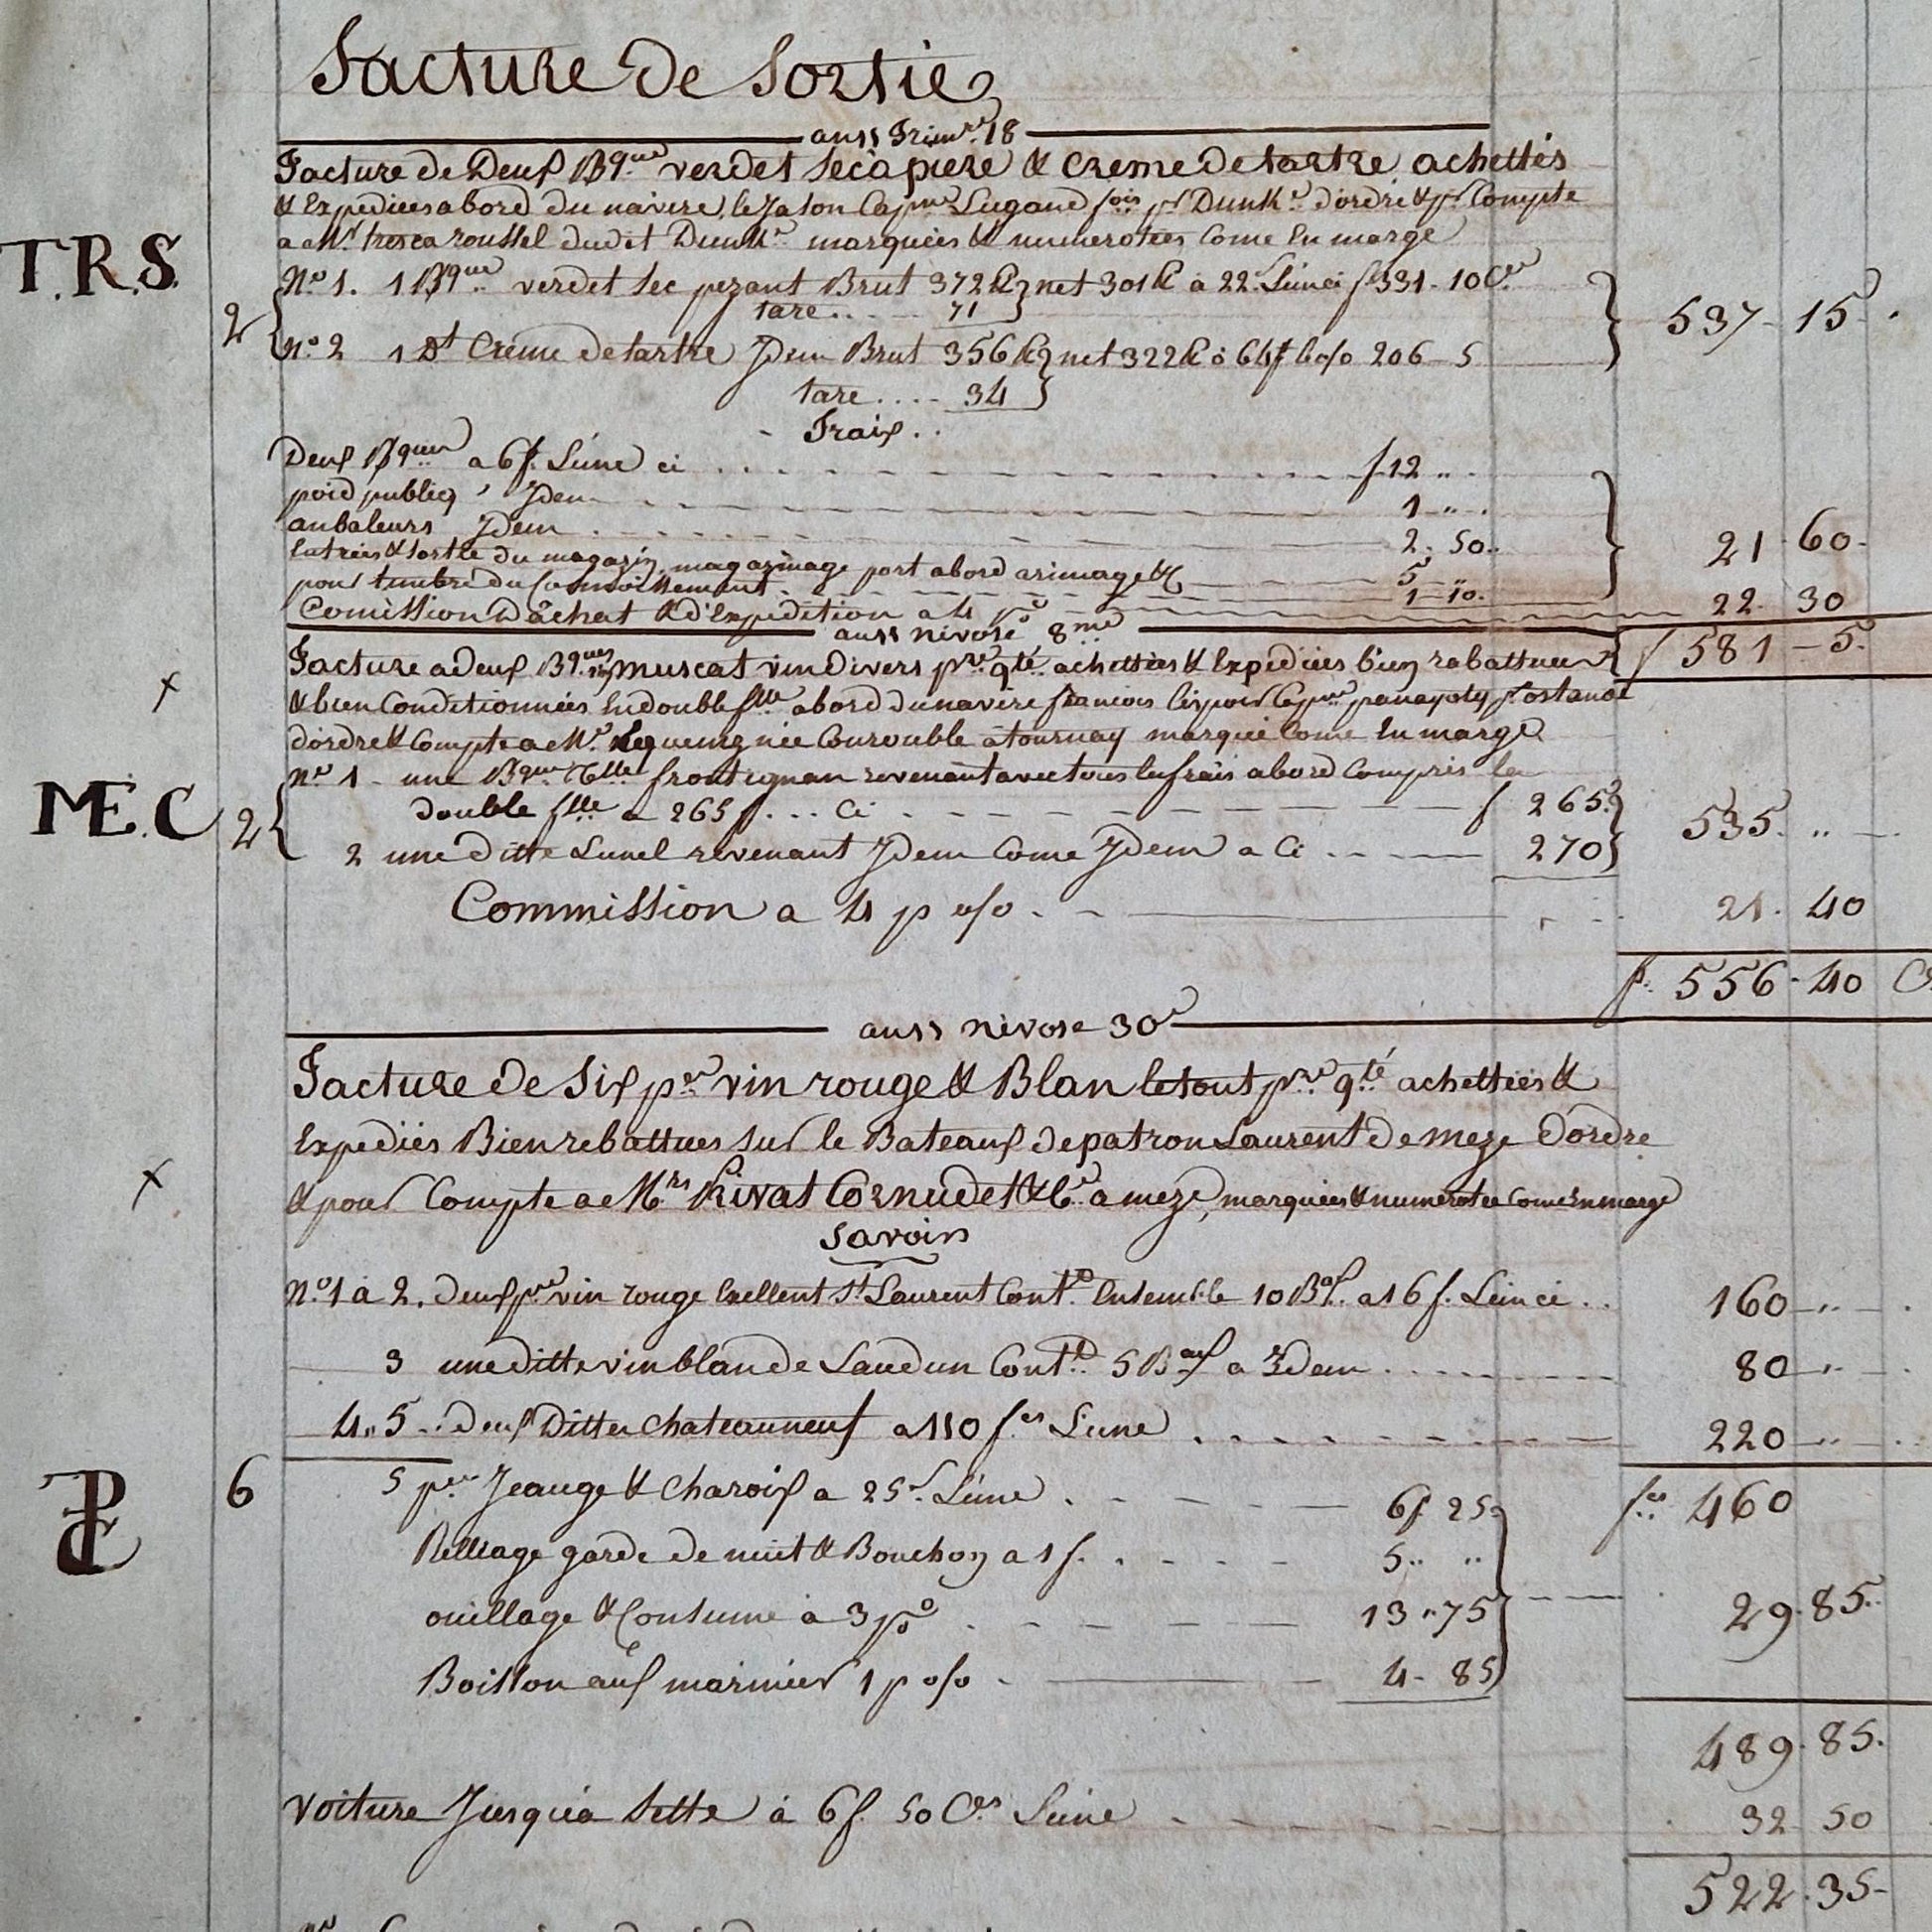 Facture de Sortie
an 11 Frimre 18
Facture de Deux Bques verdet sec à piere & creme de tartre achettés
& Expediées abord du navire le Jason Capne Lugand pr Dunke d'ordre & pr Compte
a Mr tresca roussel dudit Dunke marquées & numerotées Come En marge
T.R.S.
No 1. 1 Bque verdet sec pezant Brut 372 net 301 à 22s L'un ci f 331-10
tare.... 71
2
537-15.
No 2 1 Dt Crème de tartre Jdem Brut 356 net 322 à 64f le o/o 206-5
tare.... 34
- Fraix..
Deux Bques a 6f. L'une ci f 12 "
poid publiq, Jdem 1 "
anbaleurs Jdem 2. 50.
21 60.
Entrées & sortie du magazin, magazinage port abord arimage & 5 "
pour timbre du Connoissement. 1-10.
Comission D'achat & d'Expedition a 4 po 22. 30
f 581-5.
an 11 nivose 8me
Facture a deux Bques vin muscat vin divers pre qté achettées & Expediées bien rabattues
& bien Conditionnées En double flle abord du navire francois L'espoir Capne panayoty pr ostande
d'ordre & Compte a Mr Lequeugnée Courouble à tournay marqué Come En marge
No 1 - une Bque frontignan revenant avec tous les frais abord Compris la
M.E.C
2
double flle a 265 f... Ci f 265.
535. "
2 une ditte Lunel revenant Jdem Come Jdem a Ci 270
Commission a 4 p o/o.- 21. 40
f. 556.40
an 11 nivose 30e
Facture de Six pes vin rouge & Blan le tout pre qté achettées &
Expediés Bien rebattues sur le Bateaux de patron Laurent de meze D'ordre
& pour Compte a Mrs Rivat Cornudet & Ce a meze, marquées & numerotée Come En marge
Savoir
No 1 à 2. deux pes vin rouge Exellent St Laurent Contt Ensemble 10 Bux a 16 f. L'un ci.. 160-"-
3 une ditte vin blan de Laudun Contt 5 Baux a Jdem 80-"-
4..5.. deux Dittes chateauneuf a 110 fcs L'une 220-"
fcs 460
6
5 pes Jeauge & Charoix a 25c. L'une. 6f 25
Relliage garde de nuit & Bouchon a 1 f. 5.. "
ouillage & Consume à 3 po 13.75
29.85.
Boisson aux marinier 1 p o/o - 4-85
489.85.
voiture Jusqu'a Sette à 6f. 50 Ces L'une 32 50
522.35-